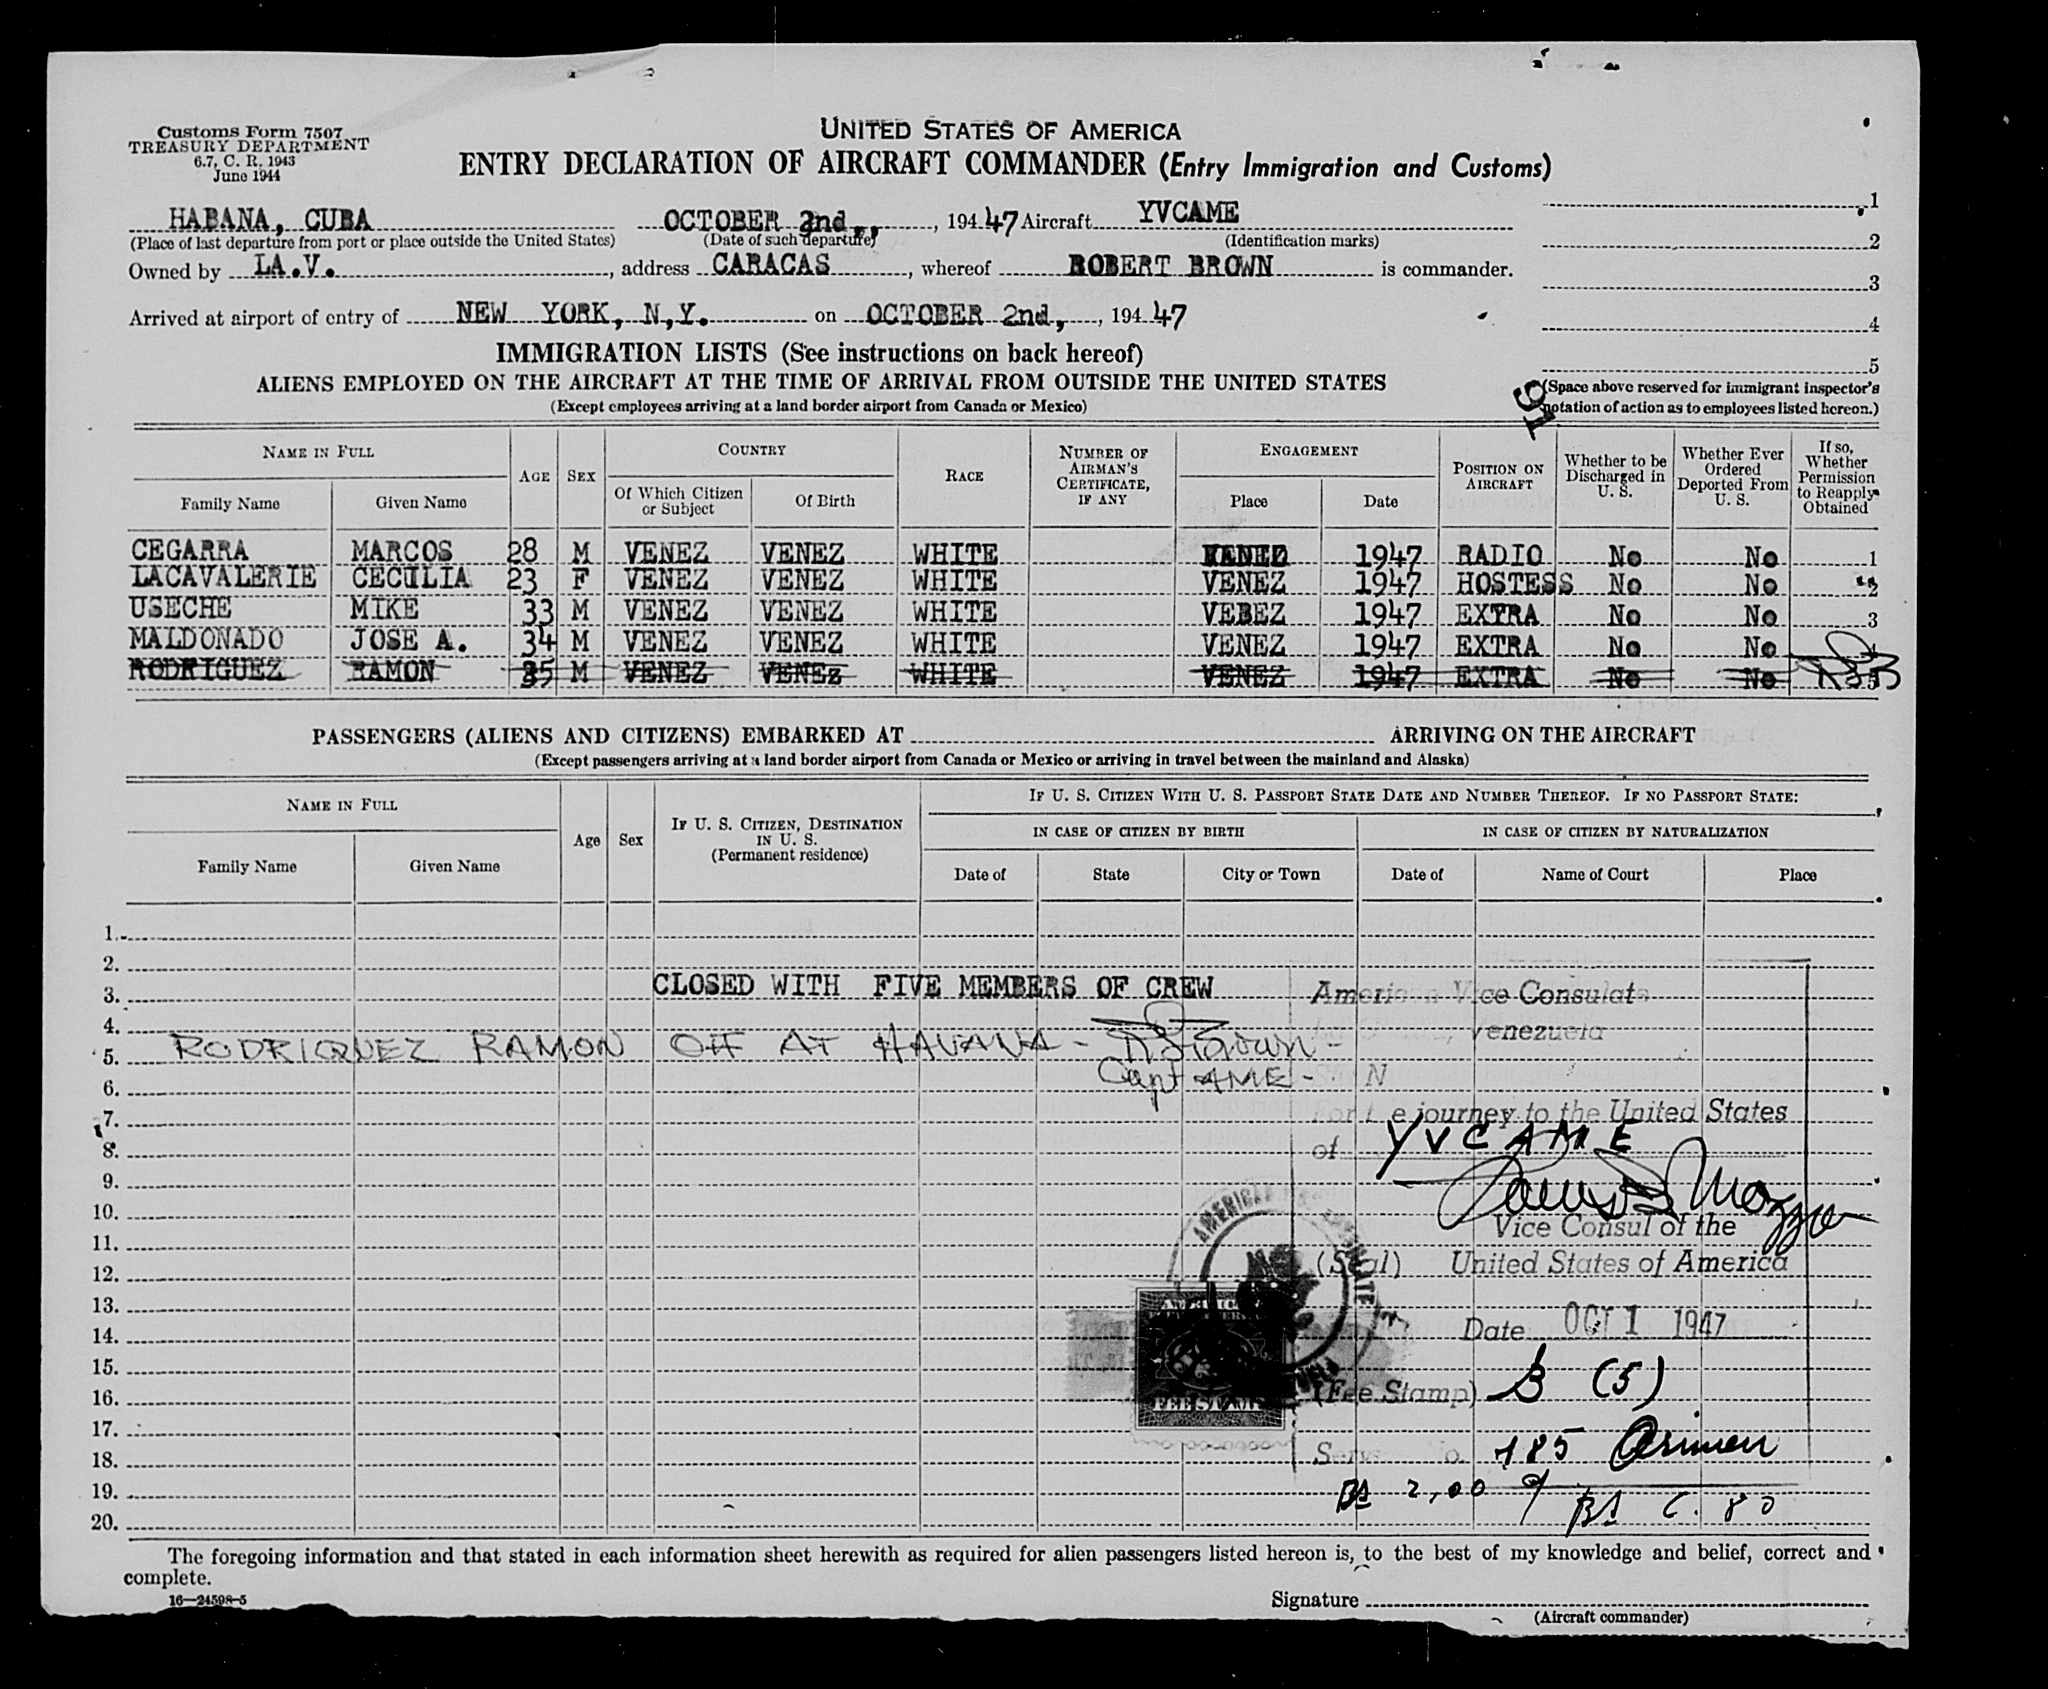 Customs Form 7507
TREASURY DEPARTMENT
6.7, C. R. 1943
June 1944
UNITED STATES OF AMERICA
ENTRY DECLARATION OF AIRCRAFT COMMANDER (Entry Immigration and Customs)
HABANA, CUBA OCTOBER 2nd,, , 194 47 Aircraft YVCAME
(Place of last departure from port or place outside the United States) (Date of such departure) (Identification marks)
Owned by LA.V. , address CARACAS , whereof ROBERT BROWN is commander.
Arrived at airport of entry of NEW YORK, N,Y. on OCTOBER 2nd, , 194 47
1
2
3
4
5
(Space above reserved for immigrant inspector's
notation of action as to employees listed hereon.)
IMMIGRATION LISTS (See instructions on back hereof)
ALIENS EMPLOYED ON THE AIRCRAFT AT THE TIME OF ARRIVAL FROM OUTSIDE THE UNITED STATES
(Except employees arriving at a land border airport from Canada or Mexico)
NAME IN FULL AGE SEX COUNTRY RACE NUMBER OF AIRMAN'S CERTIFICATE, IF ANY ENGAGEMENT POSITION ON AIRCRAFT Whether to be Discharged in U. S. Whether Ever Ordered Deported From U. S. If so, Whether Permission to Reapply Obtained
Family Name Given Name Of Which Citizen or Subject Of Birth Place Date
CEGARRA MARCOS 28 M VENEZ VENEZ WHITE 1947 RADIO No No 1
LACAVALERIE CECILIA 23 F VENEZ VENEZ WHITE VENEZ 1947 HOSTESS No No 2
USECHE MIKE 33 M VENEZ VENEZ WHITE VEBEZ 1947 EXTRA No No 3
MALDONADO JOSE A. 34 M VENEZ VENEZ WHITE VENEZ 1947 EXTRA No No 4
RODRIGUEZ RAMON 35 M VENEZ VENEz WHITE VENEZ 1947 EXTRA No No 5
PASSENGERS (ALIENS AND CITIZENS) EMBARKED AT ARRIVING ON THE AIRCRAFT
(Except passengers arriving at a land border airport from Canada or Mexico or arriving in travel between the mainland and Alaska)
NAME IN FULL Age Sex IF U. S. CITIZEN, DESTINATION IN U. S. (Permanent residence) IF U. S. CITIZEN WITH U. S. PASSPORT STATE DATE AND NUMBER THEREOF. IF NO PASSPORT STATE:
IN CASE OF CITIZEN BY BIRTH IN CASE OF CITIZEN BY NATURALIZATION
Family Name Given Name Date of State City or Town Date of Name of Court Place
1.
2.
3. CLOSED WITH FIVE MEMBERS OF CREW American Vice Consulate
4. Venezuela
5. RODRIQUEZ RAMON OFF AT HAVANA - R Brown -
6. Capt AME -
7. For the journey to the United States
8. of YVCAME
9.
10. Vice Consul of the
11.
12. (Seal) United States of America
13.
14. Date OCT 1 1947
15.
16. (Fee Stamp) (5)
FEE STAMP
17.
18. 485
19. Bs 2,00
20.
The foregoing information and that stated in each information sheet herewith as required for alien passengers listed hereon is, to the best of my knowledge and belief, correct and
complete.
16—24598-5
Signature
(Aircraft commander)